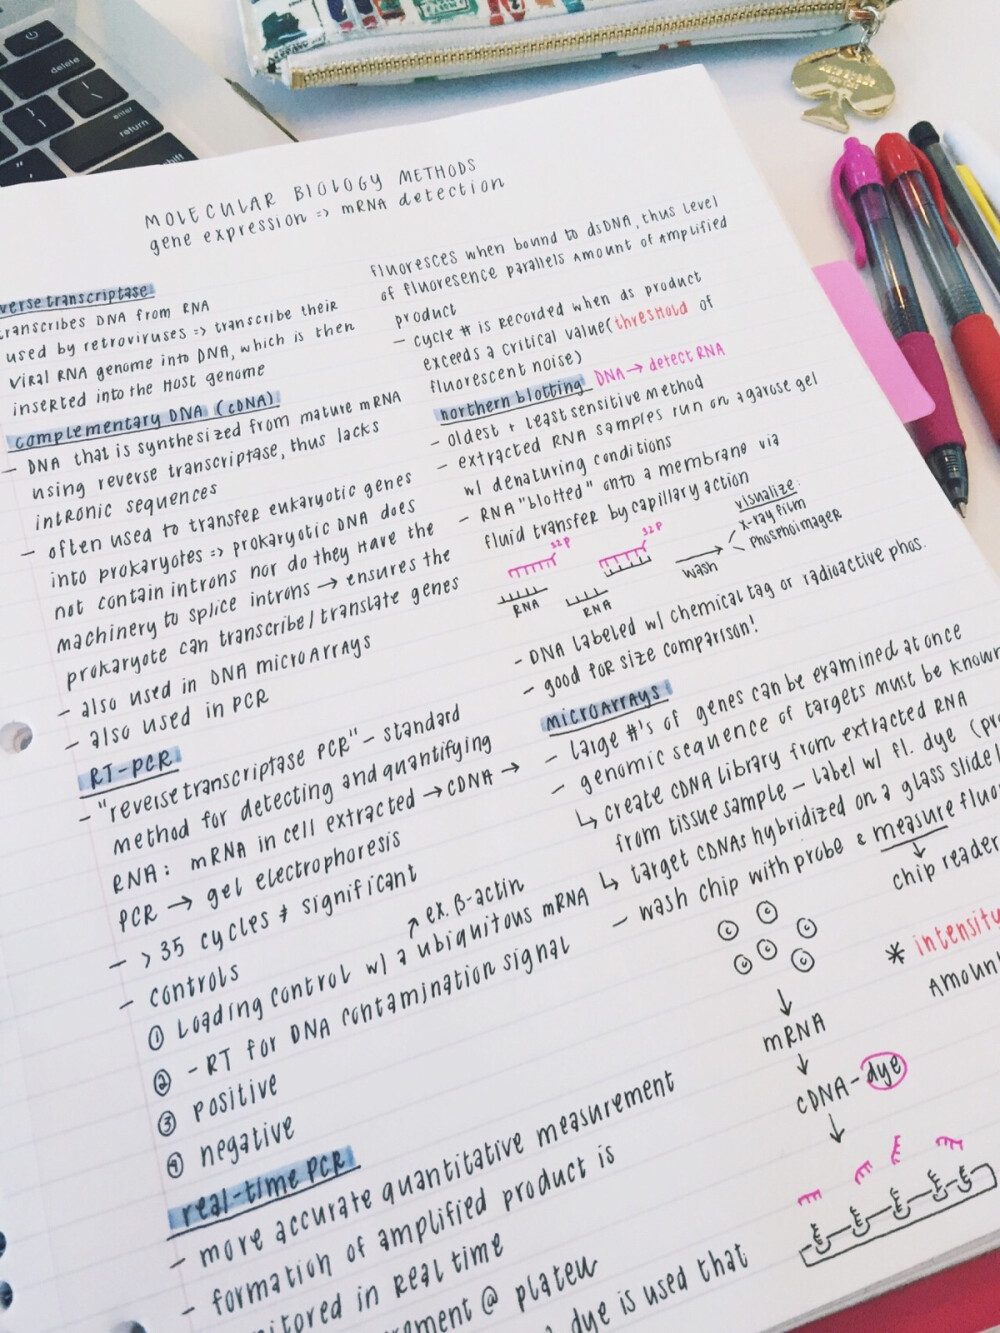 delete
enter
return
shift
MOLECULAR BIOLOGY METHODS
gene expression => mRNA detection
verse transcriptase
transcribes DNA from RNA
used by retroviruses => transcribe their
viral RNA genome into DNA, which is then
inserted into the host genome
complementary DNA (cDNA)
- DNA that is synthesized from mature mRNA
using reverse transcriptase, thus lacks
intronic sequences
- often used to transfer eukaryotic genes
into prokaryotes => prokaryotic DNA does
not contain introns nor do they have the
machinery to splice introns → ensures the
prokaryote can transcribe/translate genes
- also used in DNA microarrays
- also used in PCR
RT-PCR
- "reverse transcriptase PCR" - standard
method for detecting and quantifying
RNA: mRNA in cell extracted → cDNA →
PCR → gel electrophoresis
- > 35 cycles ≠ significant
- controls
↗ ex. β-actin
① Loading control w/ a ubiquitous mRNA
② -RT for DNA contamination signal
③ positive
④ negative
real-time PCR
- more accurate quantitative measurement
- formation of amplified product is
nitored in real time
rement @ plateu
dye is used that
fluoresces when bound to dsDNA, thus level
of fluoresence parallels amount of amplified
product
- cycle # is recorded when ds product
exceeds a critical value (threshold of
fluorescent noise)
northern blotting DNA → detect RNA
- oldest + least sensitive method
- extracted RNA samples run on agarose gel
w/ denaturing conditions
- RNA "blotted" onto a membrane via
fluid transfer by capillary action
32P
32P
RNA
RNA
wash
visualize:
x-ray film
phosphoimager
- DNA labeled w/ chemical tag or radioactive phos.
- good for size comparison!
microarrays
- large #'s of genes can be examined at once
- genomic sequence of targets must be known
↳ create cDNA library from extracted RNA
from tissue sample - label w/ fl. dye (pr
↳ target cDNAs hybridized on a glass slide
- wash chip with probe & measure fluo
↓
chip reader
* intensity
amoun
↓
mRNA
↓
cDNA-dye
↓